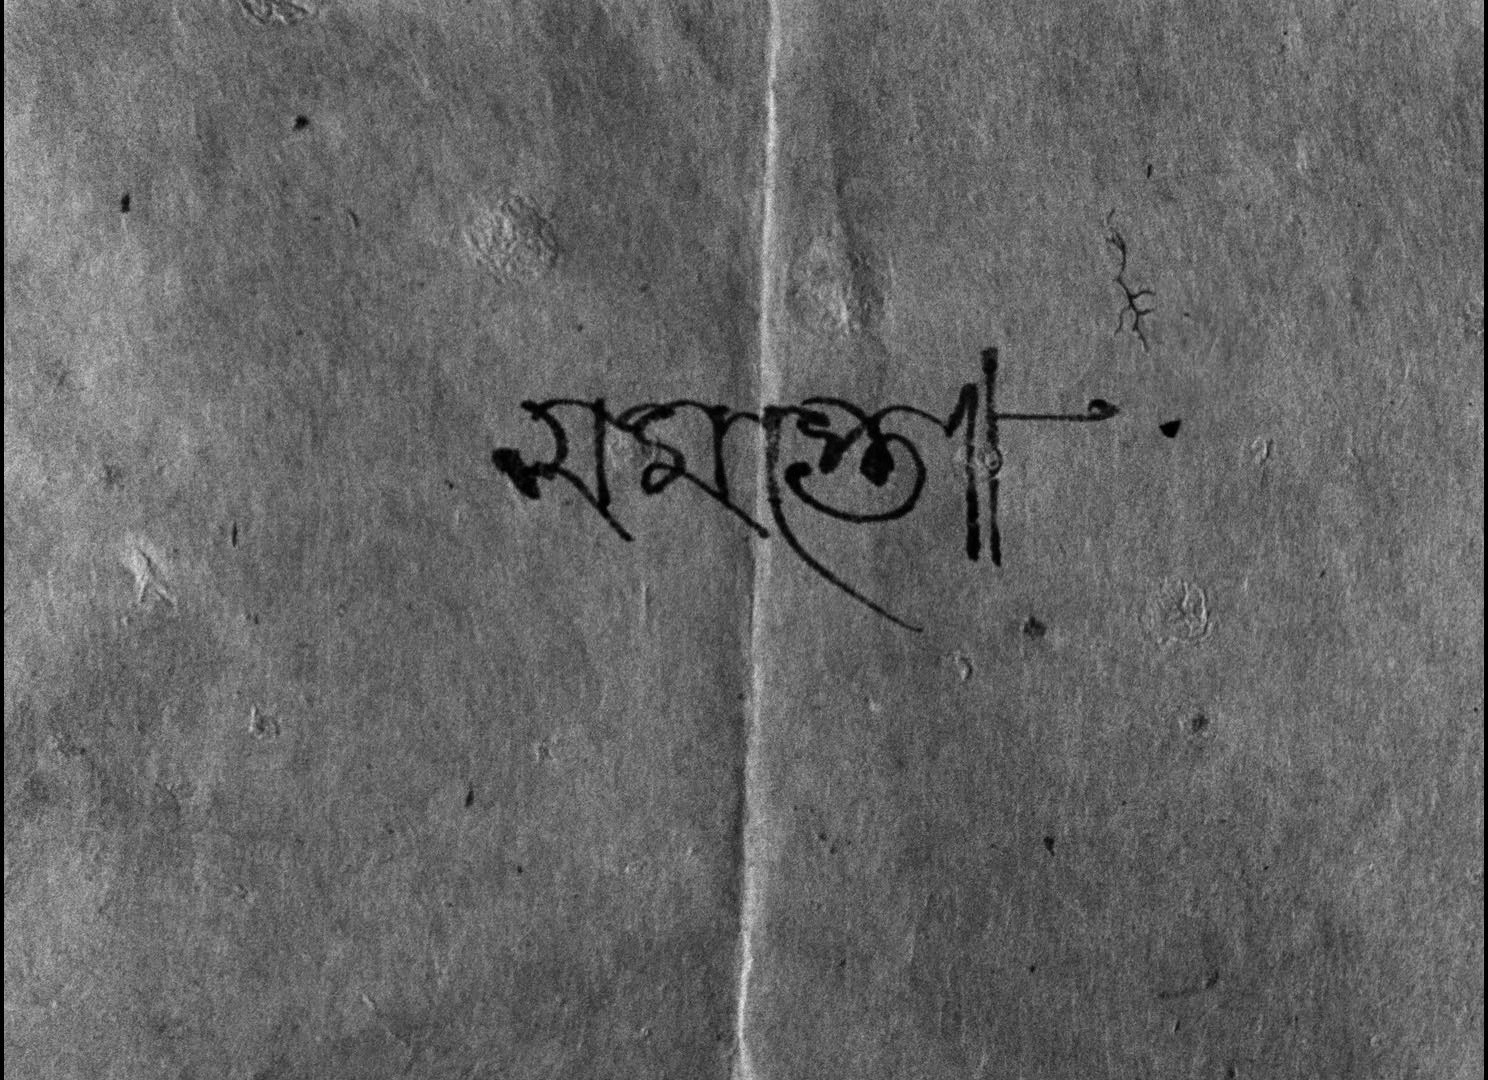 সমাপ্ত॥